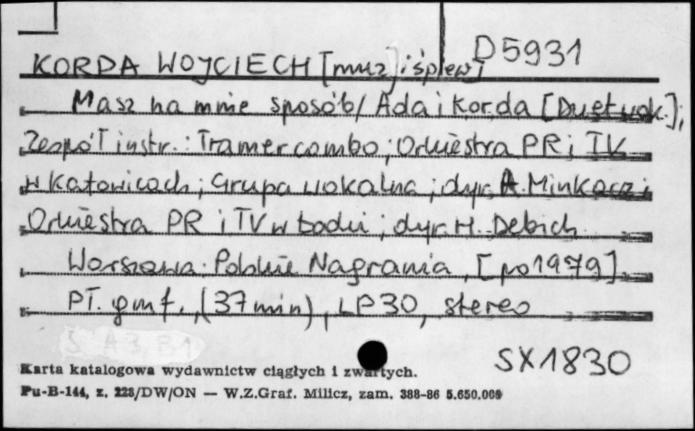 D5931
KORDA WOJCIECH [muz] i śpiew]
Masz na mnie sposób / Ada i Korda [Duet wok.];
Zespół instr.: Tramer combo; Orkiestra PR i TV
w Katowicach; Grupa wokalna; dyr. A. Minkacz i
Orkiestra PR i TV w Łodzi; dyr. H. Debich
Warszawa: Polskie Nagrania, [po 1979].
Pł. gmf., (37 min), LP30, stereo
S. A3, B1
SX1830
Karta katalogowa wydawnictw ciągłych i zwartych.
Pu-B-144, z. 228/DW/ON — W.Z.Graf. Milicz, zam. 388-86 5.650.000